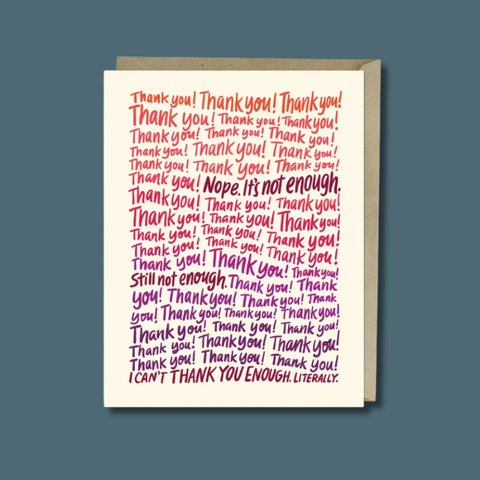 Thank you! Thank you! Thank you!
Thank you! Thank you! Thank you!
Thank you! Thank you! Thank you!
Thank you! Thank you! Thank you!
Thank you! Thank you! Thank you!
Thank you! Nope. It's not enough.
Thank you! Thank you! Thank you!
Thank you! Thank you! Thank you!
Thank you! Thank you! Thank you!
Thank you! Thank you! Thank you!
Thank you! Thank you! Thank you!
Still not enough. Thank you! Thank
you! Thank you! Thank you! Thank
you! Thank you! Thank you! Thank you!
Thank you! Thank you! Thank you!
Thank you! Thank you! Thank you!
Thank you! Thank you! Thank you!
I CAN'T THANK YOU ENOUGH. LITERALLY.